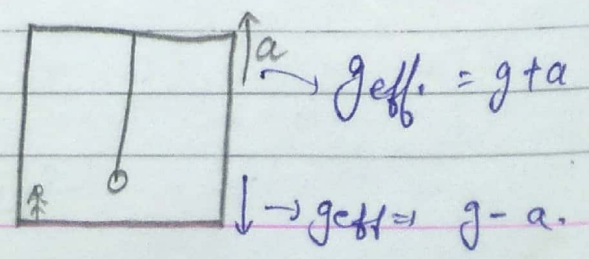 a → geff. = g + a
↓ → geff ⇒ g - a.